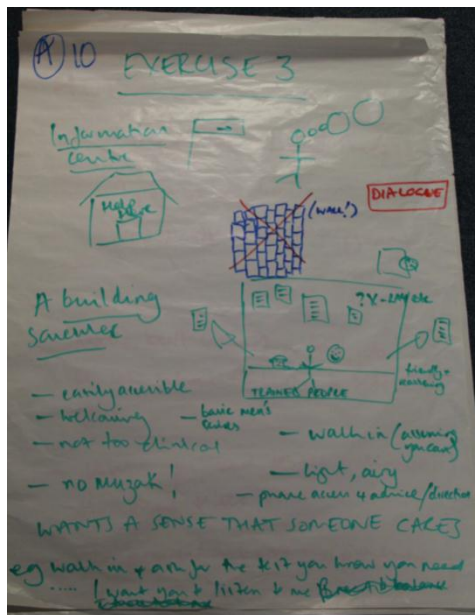 A 10 EXERCISE 3
Information
centre
(WALL!)
DIALOGUE
A building
TRAINED PEOPLE
— easily accessible
— welcoming
— not too clinical
— walk in (assuming
you can)
— light, airy
— no muzak!
— phone access + advice/direction
WANTS A SENSE THAT SOMEONE CARES
eg walk in + ask for the kit you know you need
..... I want you to listen to me